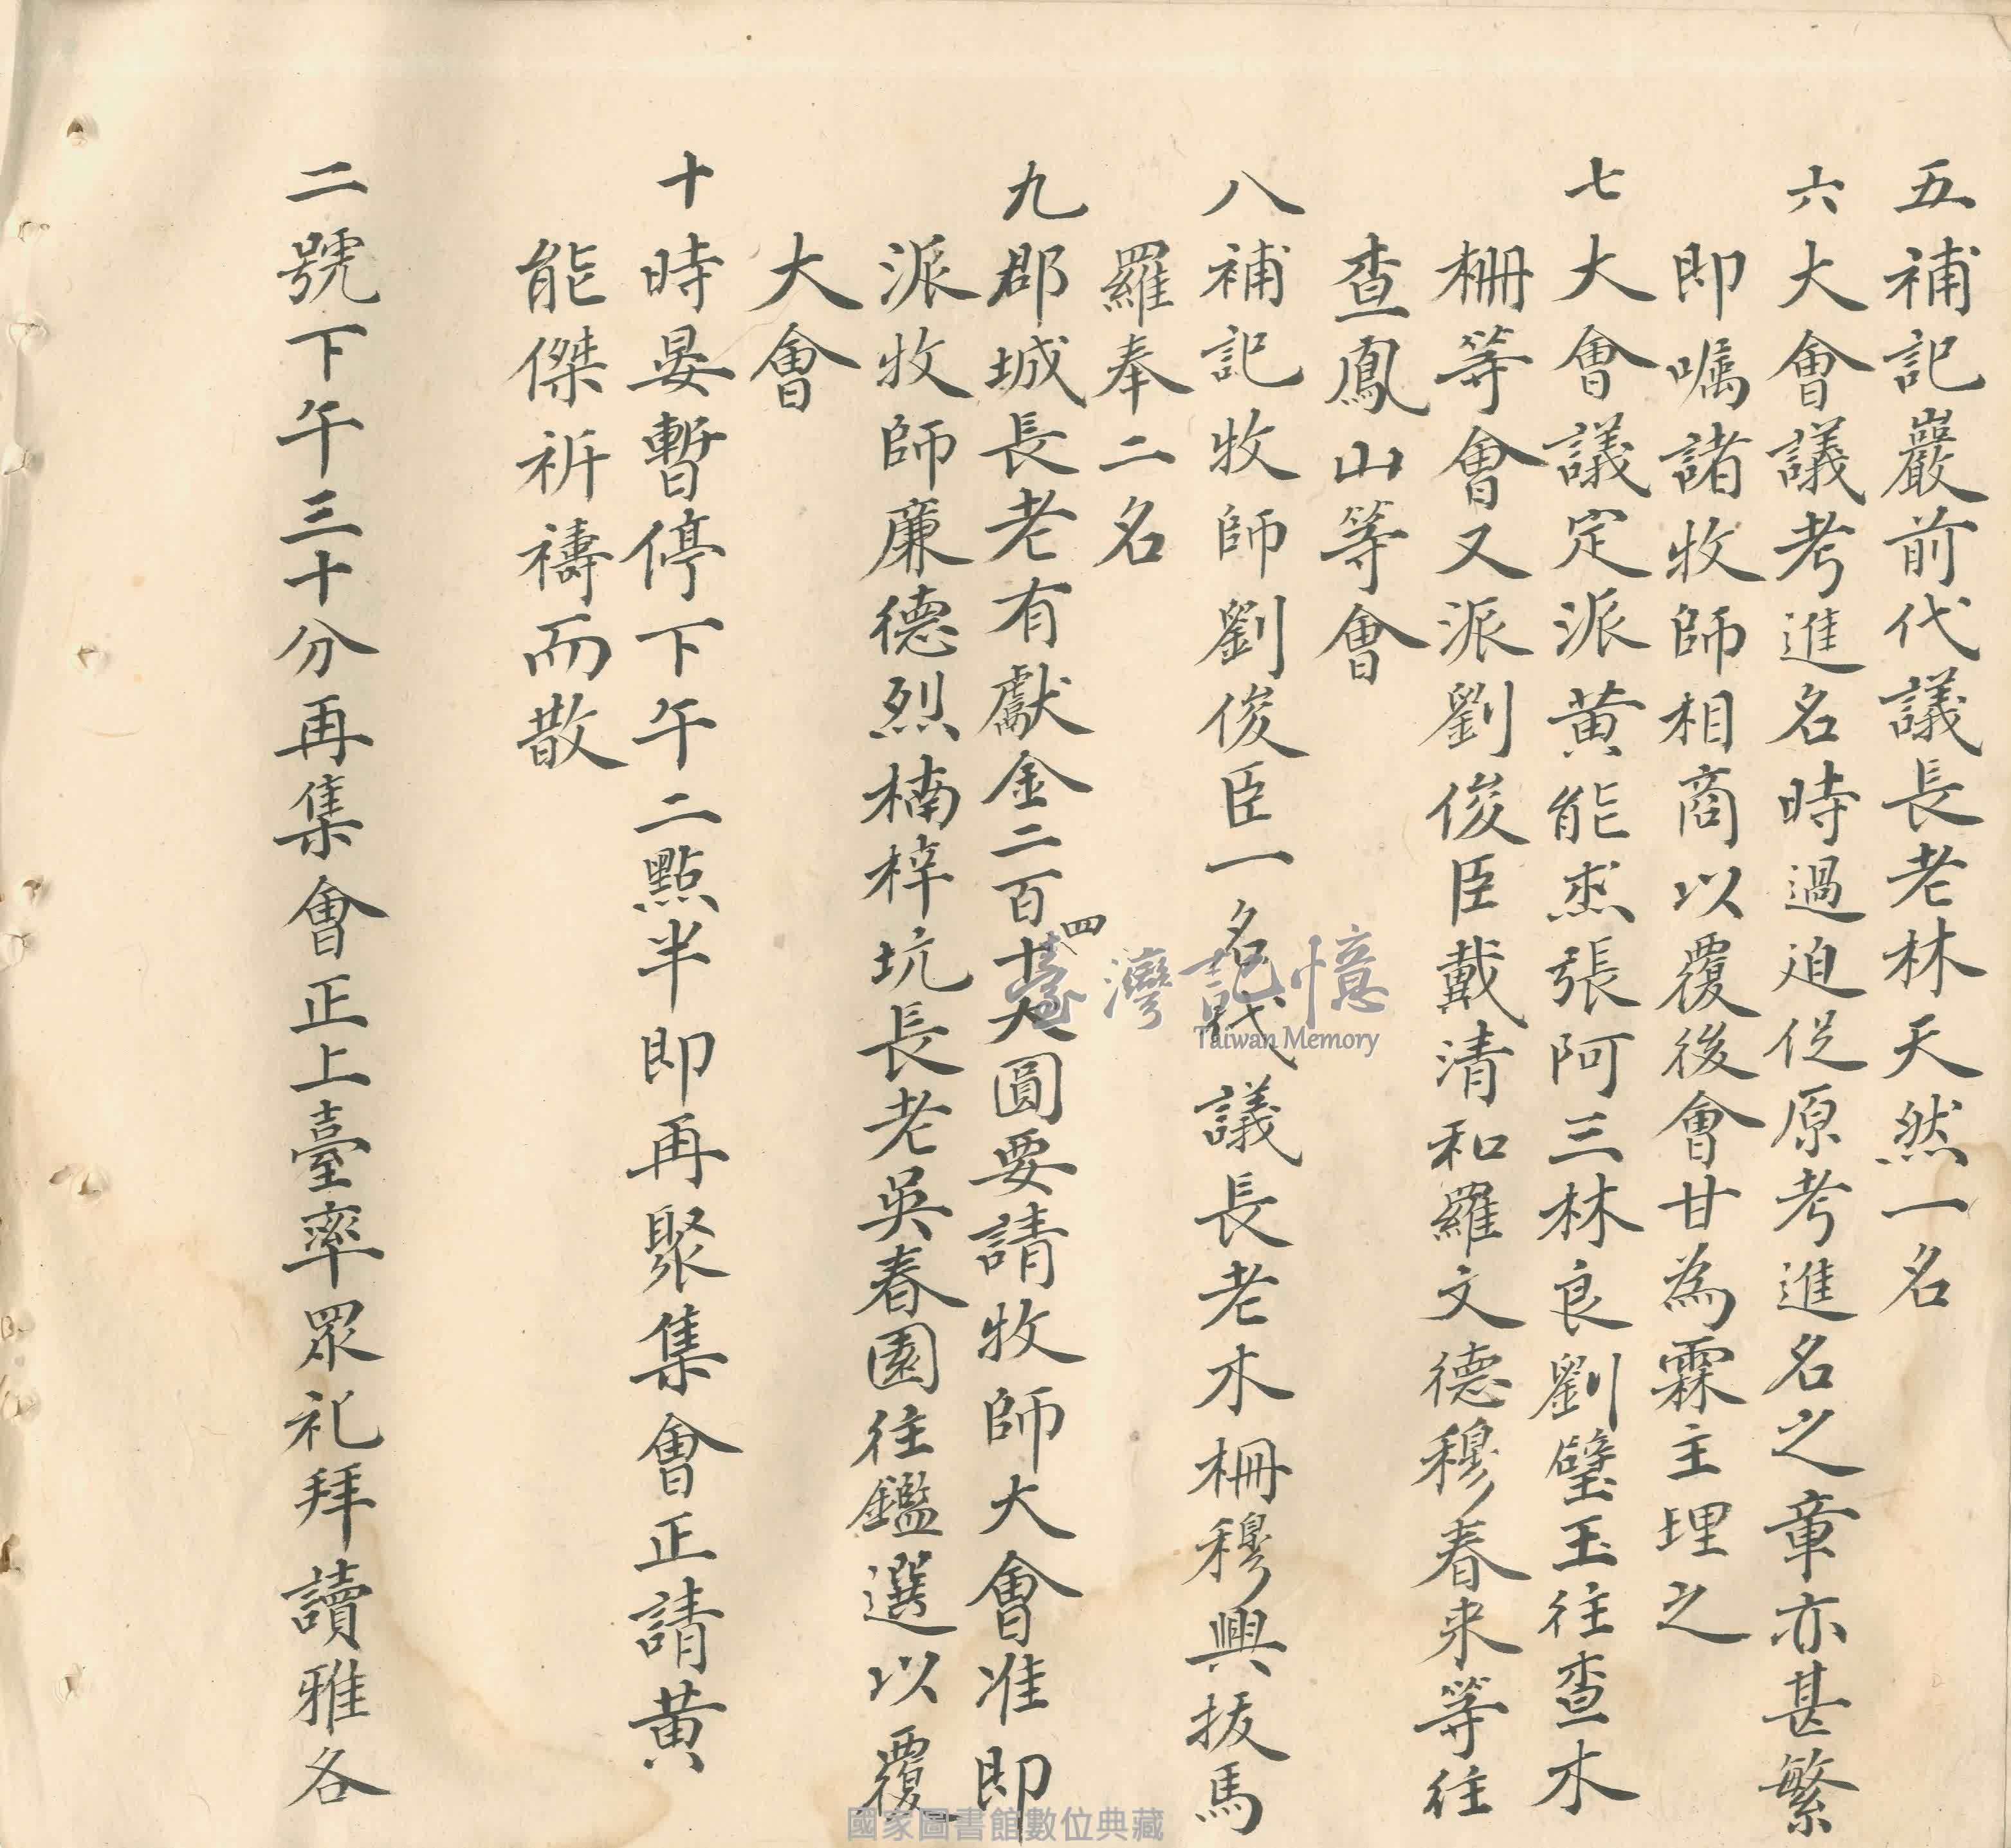 五補記巖前代議長老林天然一名
六大會議考進名時過迫促原考進名之章亦甚繁
即囑諸牧師相商以覆後會甘為霖主理之
七大會議定派黄能杰張阿三林良劉璧玉往查木
柵等會又派劉俊臣戴清和羅文德穆春来等往
查鳳山等會
八補記牧師劉俊臣一名代議長老木柵穆興拔馬
羅奉二名
九郡城長老有獻金二百四十大圓要請牧師大會准即
派牧師廉德烈楠梓坑長老吳春園往鑑選以覆
大會
十時晏暫停下午二點半即再聚集會正請黄
能傑祈禱而散
二號下午三十分再集會正上臺率眾礼拜讀雅各
臺灣記憶
Taiwan Memory
國家圖書館數位典藏